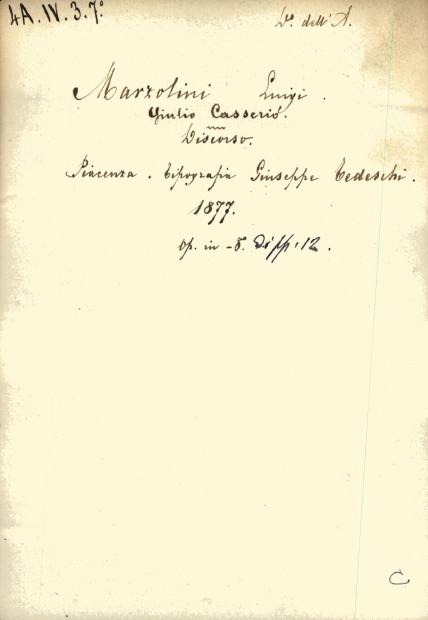 4A. IV. 3. 7º
Dº. dell' A.
Marzolini Luigi.
Giulio Casserio.
Discorso.
Piacenza. Tipografia Giuseppe Tedeschi.
1877.
Op. in -8º. Di pp. 12.
C